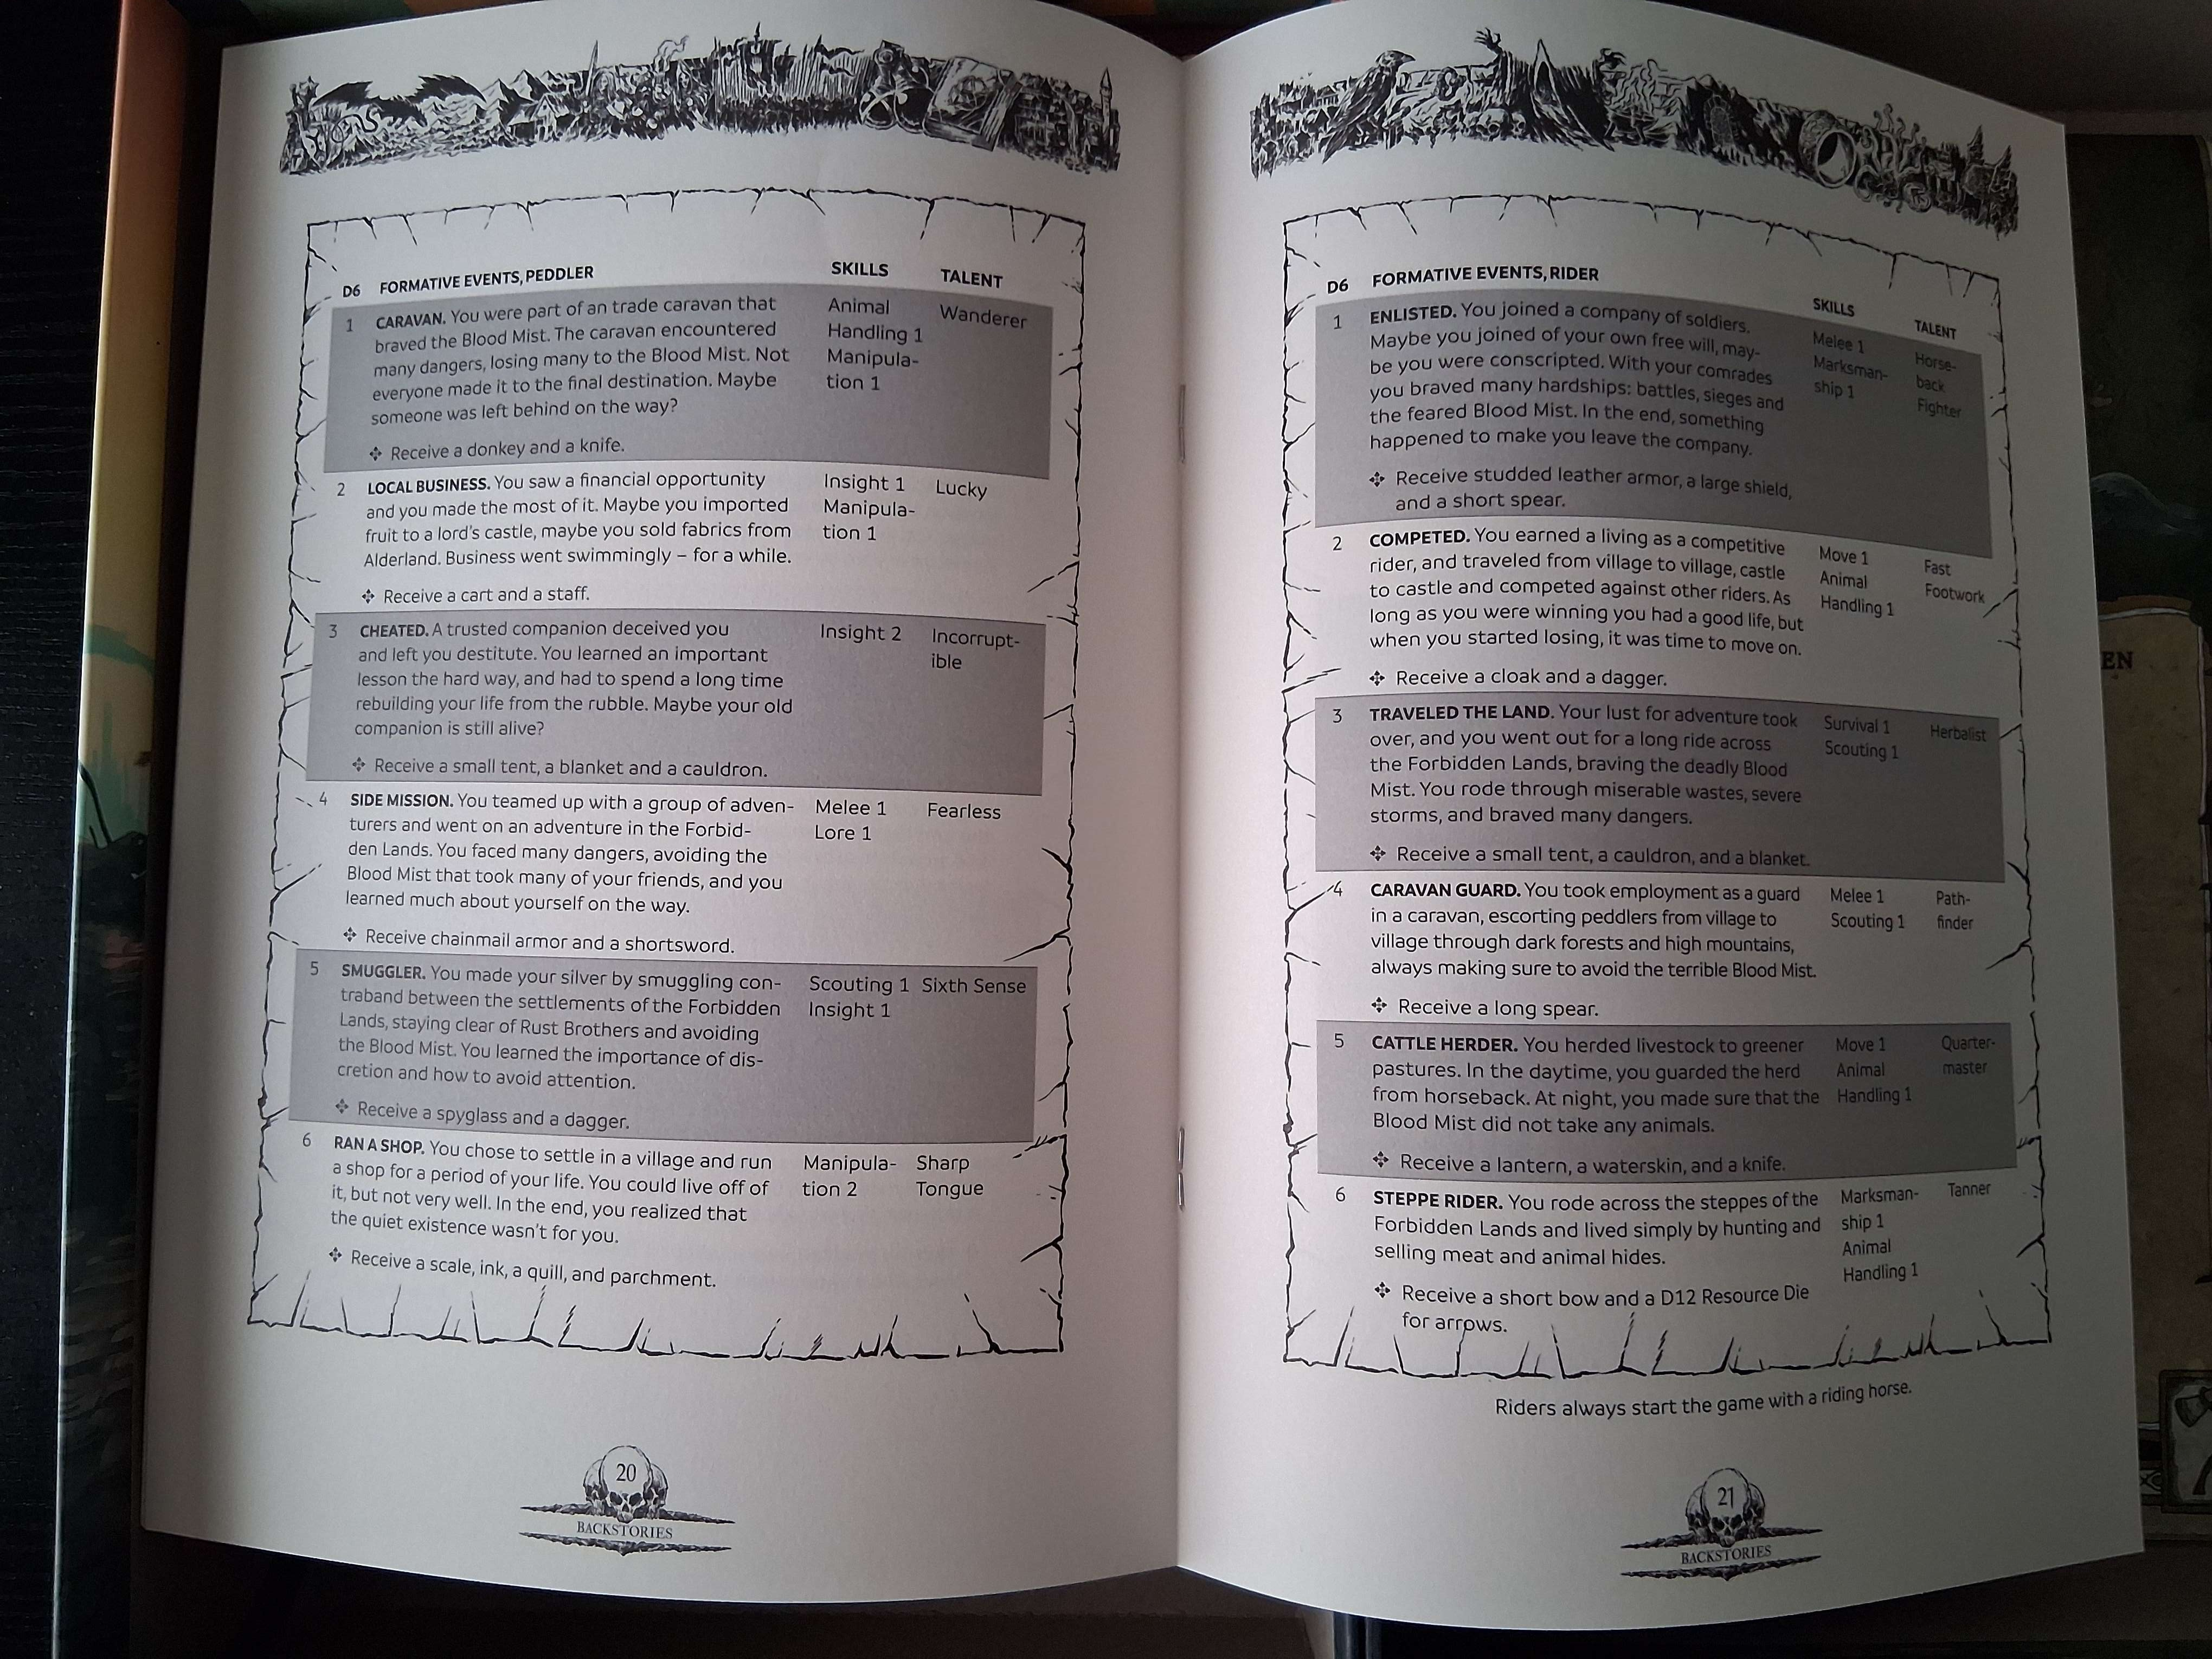 D6 FORMATIVE EVENTS, PEDDLER SKILLS TALENT
1 CARAVAN. You were part of an trade caravan that Animal Wanderer
braved the Blood Mist. The caravan encountered Handling 1
many dangers, losing many to the Blood Mist. Not Manipula-
everyone made it to the final destination. Maybe tion 1
someone was left behind on the way?
Receive a donkey and a knife.
2 LOCAL BUSINESS. You saw a financial opportunity Insight 1 Lucky
and you made the most of it. Maybe you imported Manipula-
fruit to a lord's castle, maybe you sold fabrics from tion 1
Alderland. Business went swimmingly – for a while.
Receive a cart and a staff.
3 CHEATED. A trusted companion deceived you Insight 2 Incorrupt-
and left you destitute. You learned an important ible
lesson the hard way, and had to spend a long time
rebuilding your life from the rubble. Maybe your old
companion is still alive?
Receive a small tent, a blanket and a cauldron.
4 SIDE MISSION. You teamed up with a group of adven- Melee 1 Fearless
turers and went on an adventure in the Forbid- Lore 1
den Lands. You faced many dangers, avoiding the
Blood Mist that took many of your friends, and you
learned much about yourself on the way.
Receive chainmail armor and a shortsword.
5 SMUGGLER. You made your silver by smuggling con- Scouting 1 Sixth Sense
traband between the settlements of the Forbidden Insight 1
Lands, staying clear of Rust Brothers and avoiding
the Blood Mist. You learned the importance of dis-
cretion and how to avoid attention.
Receive a spyglass and a dagger.
6 RAN A SHOP. You chose to settle in a village and run Manipula- Sharp
a shop for a period of your life. You could live off of tion 2 Tongue
it, but not very well. In the end, you realized that
the quiet existence wasn't for you.
Receive a scale, ink, a quill, and parchment.
20
BACKSTORIES
D6 FORMATIVE EVENTS, RIDER SKILLS TALENT
1 ENLISTED. You joined a company of soldiers. Melee 1 Horse-
Maybe you joined of your own free will, may- Marksman- back
be you were conscripted. With your comrades ship 1 Fighter
you braved many hardships: battles, sieges and
the feared Blood Mist. In the end, something
happened to make you leave the company.
Receive studded leather armor, a large shield,
and a short spear.
2 COMPETED. You earned a living as a competitive Move 1 Fast
rider, and traveled from village to village, castle Animal Footwork
to castle and competed against other riders. As Handling 1
long as you were winning you had a good life, but
when you started losing, it was time to move on.
Receive a cloak and a dagger.
3 TRAVELED THE LAND. Your lust for adventure took Survival 1 Herbalist
over, and you went out for a long ride across Scouting 1
the Forbidden Lands, braving the deadly Blood
Mist. You rode through miserable wastes, severe
storms, and braved many dangers.
Receive a small tent, a cauldron, and a blanket.
4 CARAVAN GUARD. You took employment as a guard Melee 1 Path-
in a caravan, escorting peddlers from village to Scouting 1 finder
village through dark forests and high mountains,
always making sure to avoid the terrible Blood Mist.
Receive a long spear.
5 CATTLE HERDER. You herded livestock to greener Move 1 Quarter-
pastures. In the daytime, you guarded the herd Animal master
from horseback. At night, you made sure that the Handling 1
Blood Mist did not take any animals.
Receive a lantern, a waterskin, and a knife.
6 STEPPE RIDER. You rode across the steppes of the Marksman- Tanner
Forbidden Lands and lived simply by hunting and ship 1
selling meat and animal hides. Animal
Handling 1
Receive a short bow and a D12 Resource Die
for arrows.
Riders always start the game with a riding horse.
21
BACKSTORIES
EN